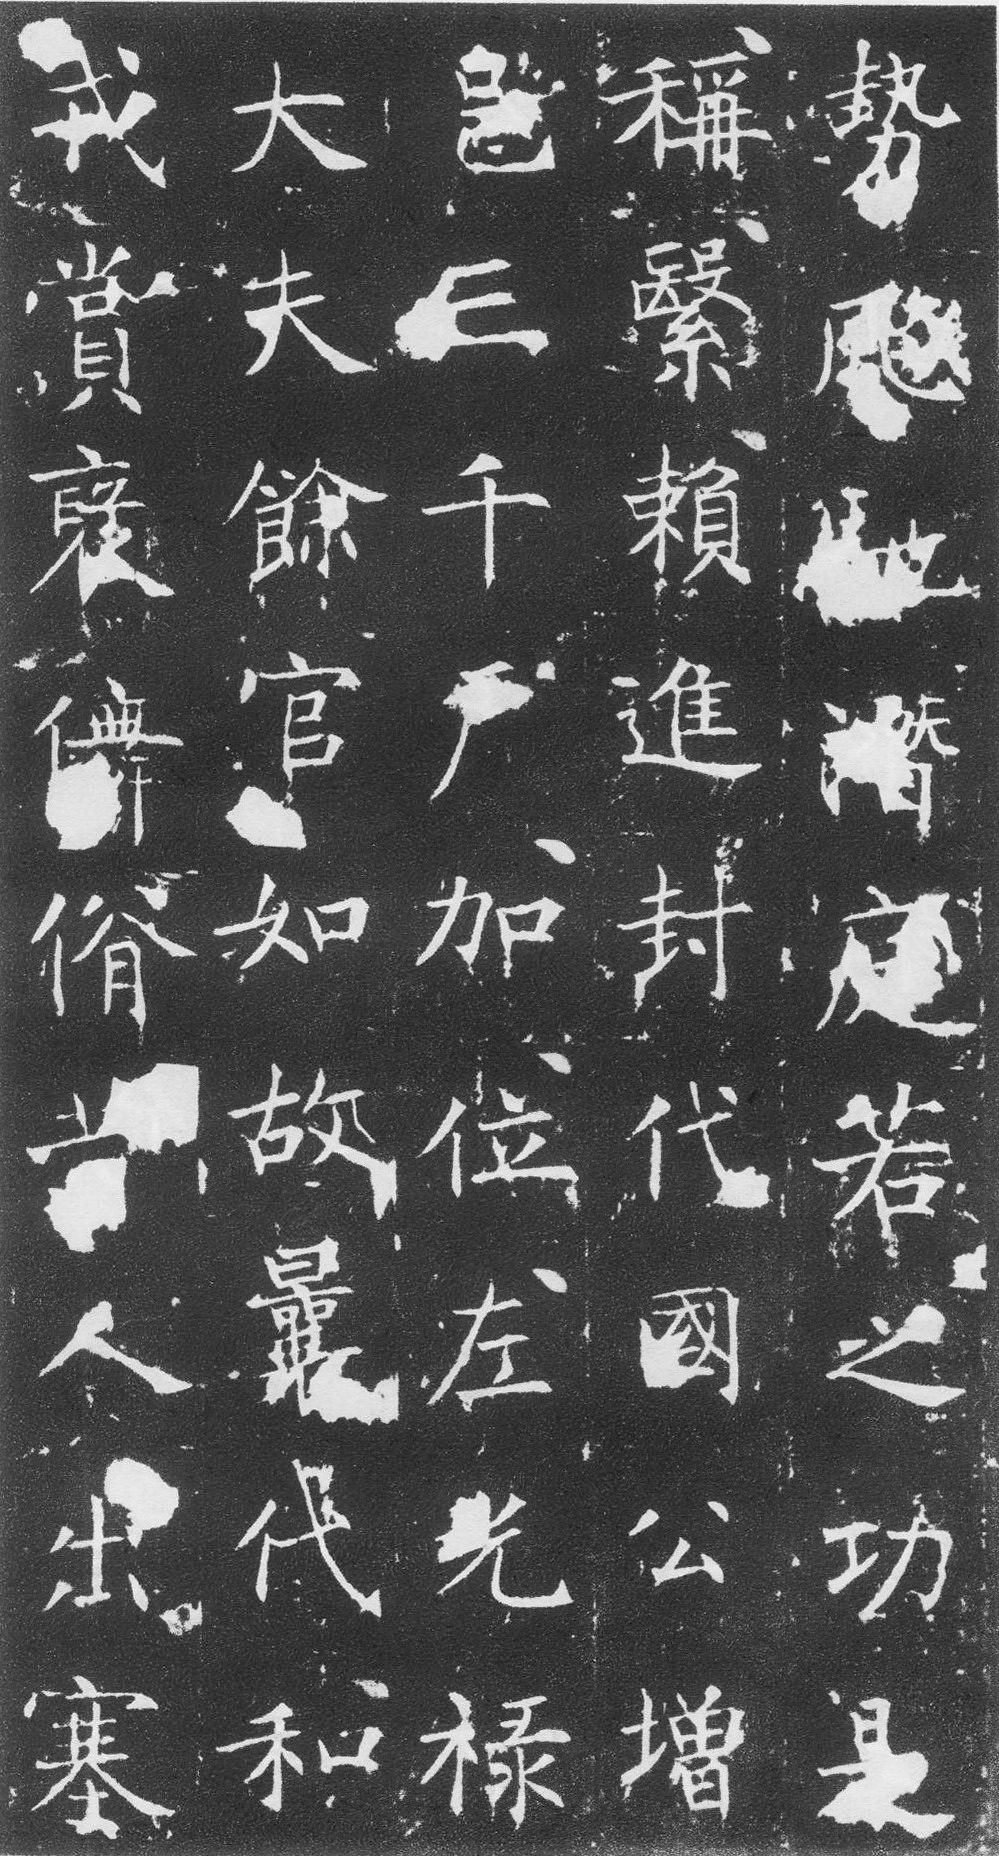 勢飈馳潛庭若之功是
稱繄賴進封代國公增
邑三千戶加位左光祿
大夫餘官如故曩代和
戎賞襃儛佾人出塞